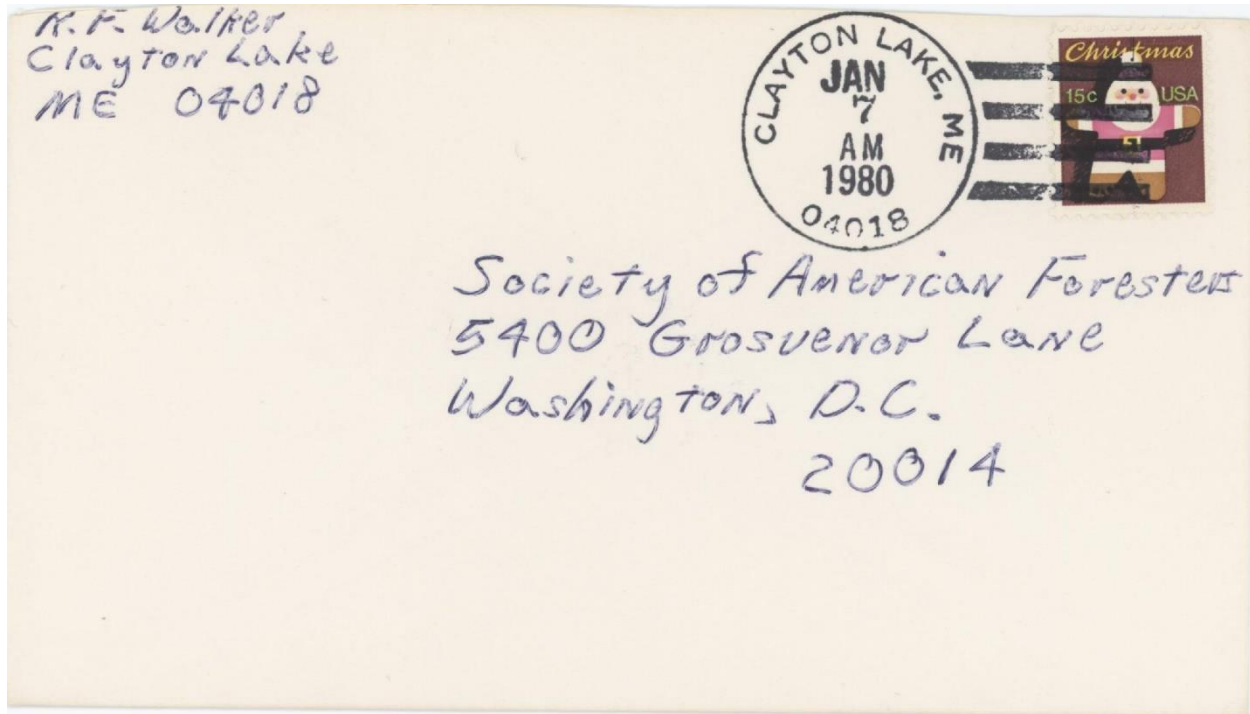 R. F. Walker
Clayton Lake
ME 04018
CLAYTON LAKE, ME
JAN
7
AM
1980
04018
Christmas
15c USA
Society of American Foresters
5400 Grosvenor Lane
Washington, D.C.
20014